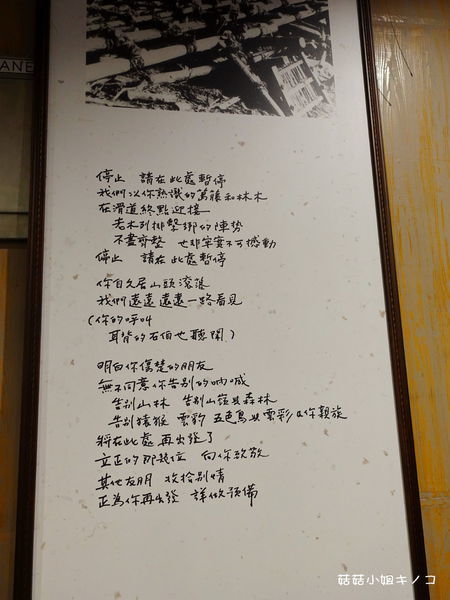 ANE
停止　請在此處暫停
我們以你熟識的萬籐和林木
在滑道終點迎接
老木列排整綁的陣勢
不盡齊整　也非牢實不可撼動
停止　請在此處暫停
你自久居山頭滾落
我們遠遠遠遠一路看見
(你的呼叫
耳背的石伯也聽聞)
明白你傷楚的朋友
無不同意你告別的吶喊
告別山林　告別山嵐與森林
告別猿猴　雲豹　五色鳥與雲彩&你親族
將在此處再出發了
立正的那幾位　向你致敬
其他友朋　收拾別情
正為你再出發　詳做預備
菇菇小姐キノコ